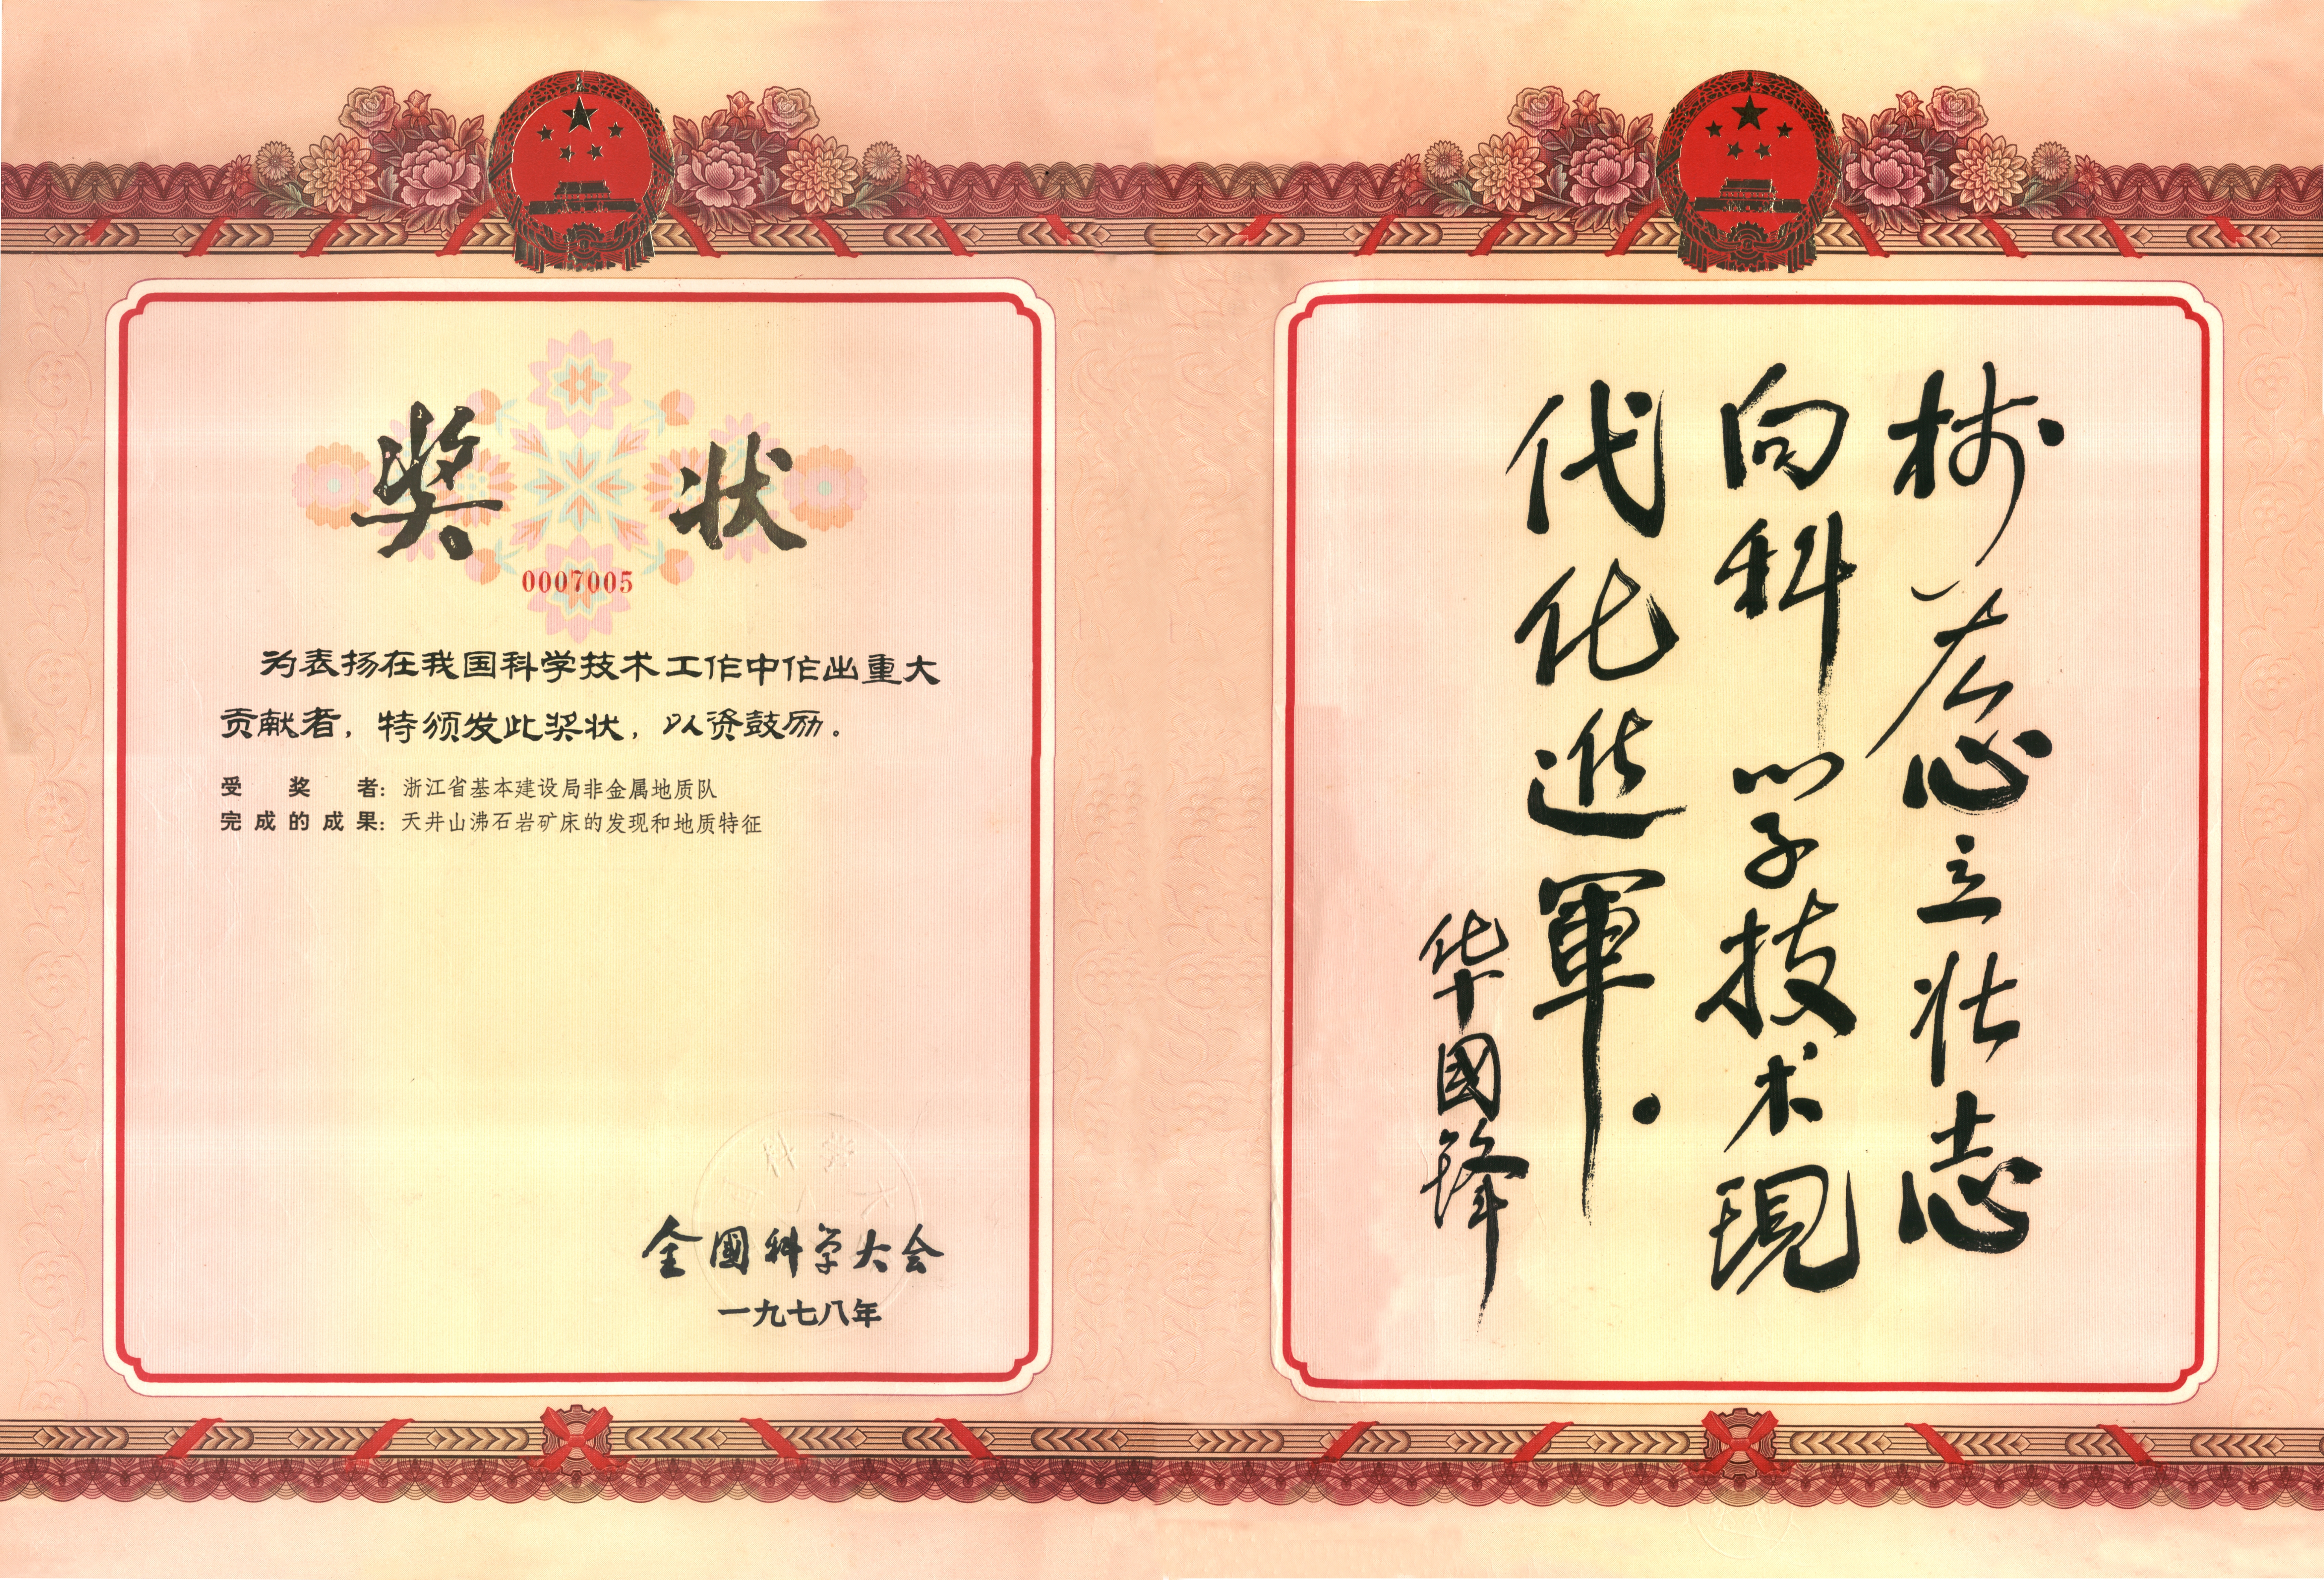 奖状
0007005
为表扬在我国科学技术工作中作出重大
贡献者，特颁发此奖状，以资鼓励。
受奖者：浙江省基本建设局非金属地质队
完成的成果：天井山沸石岩矿床的发现和地质特征
全國科学大会
一九七八年
树雄心立壮志
向科学技术現
代化進軍.
华國锋